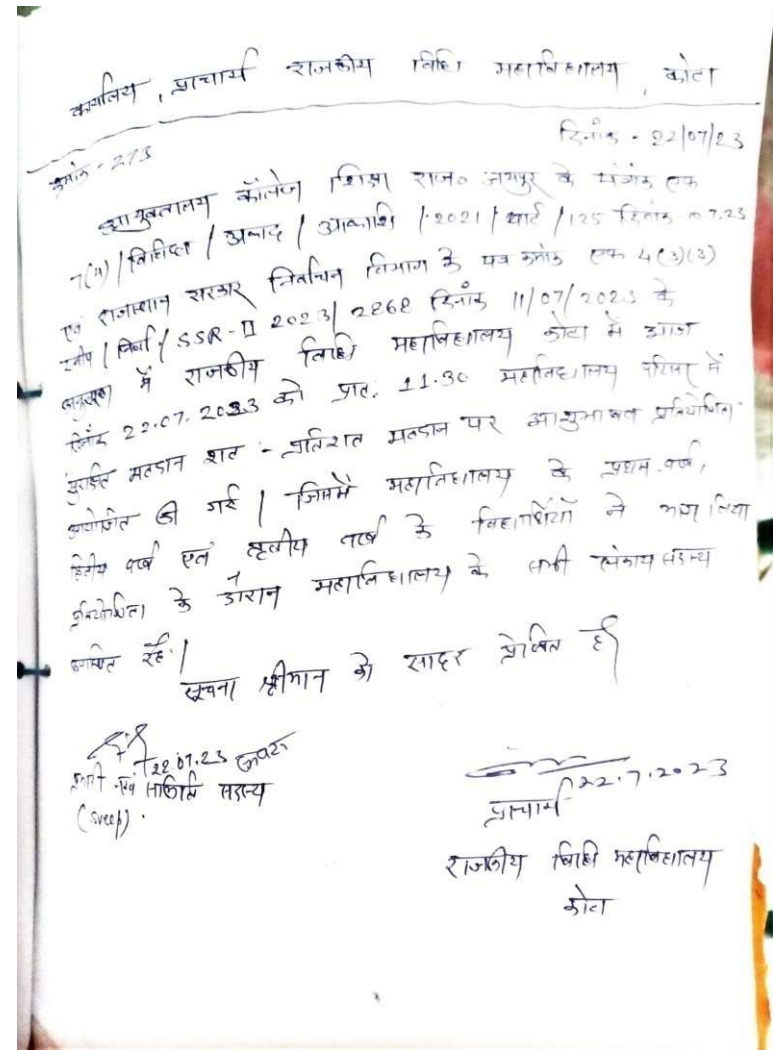 कार्यालय, प्राचार्य राजकीय विधि महाविद्यालय, कोटा
क्रमांक - 273 दिनांक - 22/07/23
आयुक्तालय कॉलेज शिक्षा राज० जयपुर के पत्रांक एफ
7( )/ / अकाद / आकाशि /2021/ पार्ट /125 दिनांक 7.23
एवं राजस्थान सरकार निर्वाचन विभाग के पत्र क्रमांक एफ 4(3)(3)
स्वीप / निर्वा / SSR-II 2023/ 2868 दिनांक 11/07/2023 के
अनुसरण में राजकीय विधि महाविद्यालय कोटा में आज
दिनांक 22.07.2023 को प्रात. 11.30 महाविद्यालय परिसर में
सुरक्षित मतदान शत - प्रतिशत मतदान पर आशुभाषण प्रतियोगिता
आयोजित की गई | जिसमें महाविद्यालय के प्रथम वर्ष,
द्वितीय वर्ष एवं तृतीय वर्ष के विद्यार्थियों ने भाग लिया
प्रतियोगिता के दौरान महाविद्यालय के सभी संकाय सदस्य
उपस्थित रहे |
सूचना श्रीमान को सादर प्रेषित है
22.07.23
प्रभारी एवं सदस्य
(sveep).
22.7.2023
प्राचार्य
राजकीय विधि महाविद्यालय
कोटा